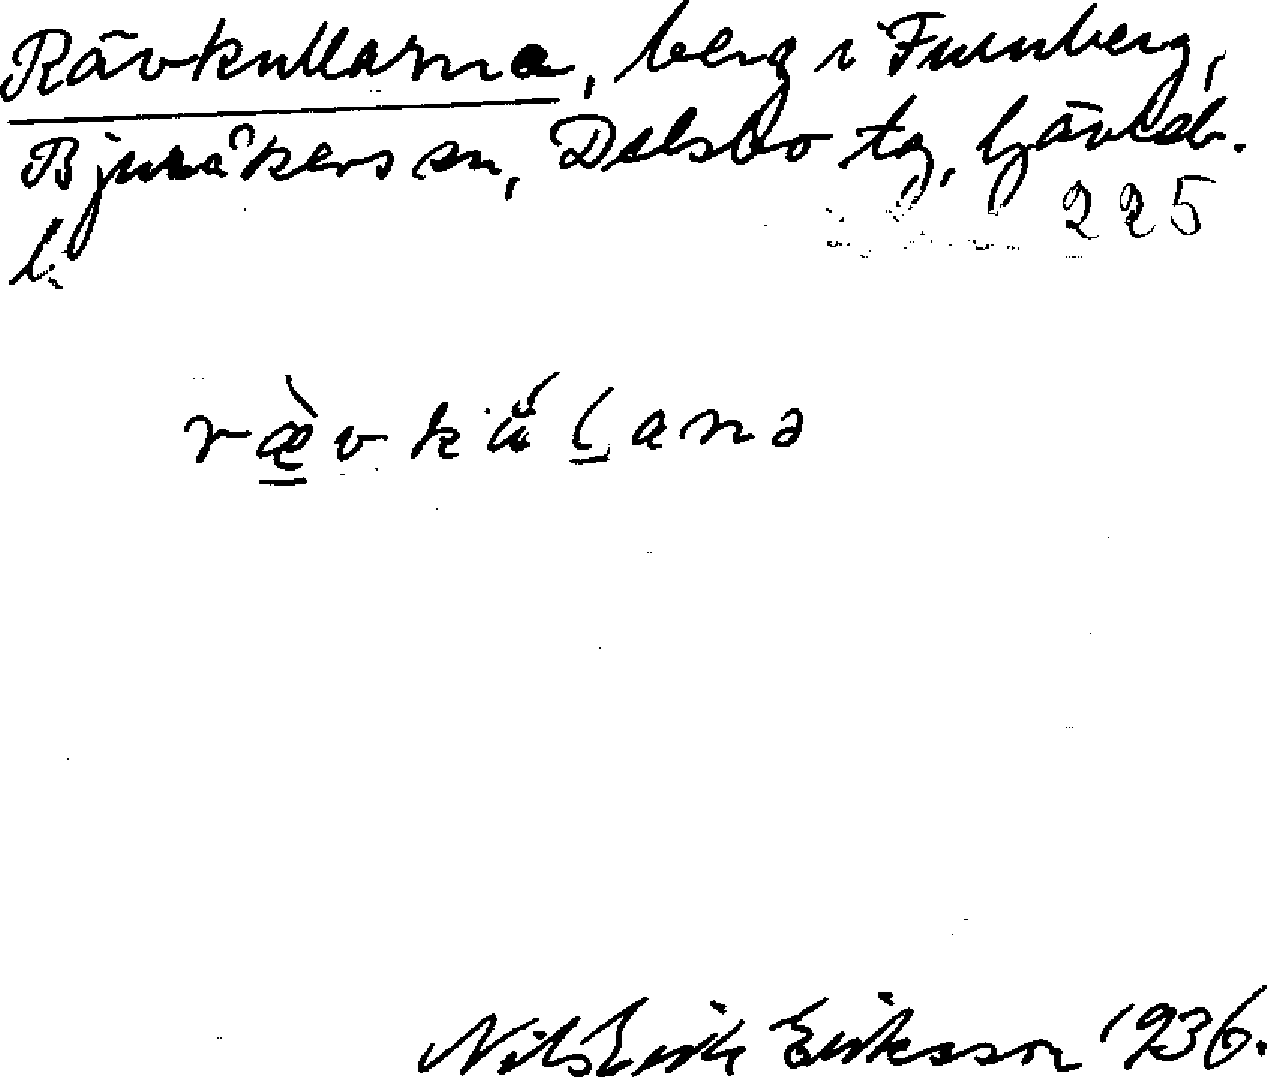 Rävkullarna, berg i Furuberg,
Bjuråkers sn, Delsbo tg, Gävleb.
l. 225
ræ̀vkŭ́lana
Nils Erik Eriksson 1936.